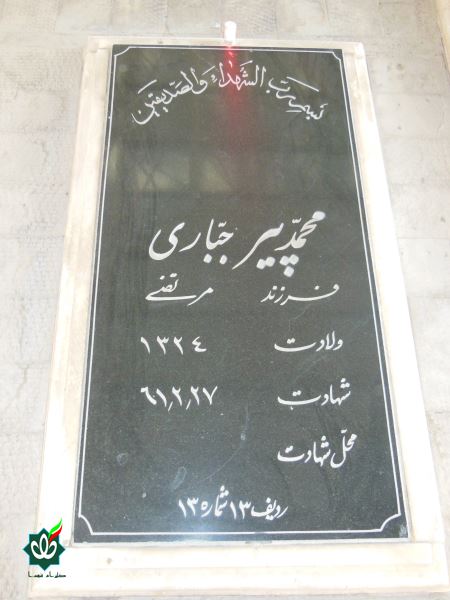 بسم رب الشهداء والصدیقین
محمد پیر جباری
فرزند مرتضی
ولادت ۱۳۲۴
شهادت ۶۱٫۲٫۲۷
محل شهادت
ردیف ۱۳ شماره ۱۳